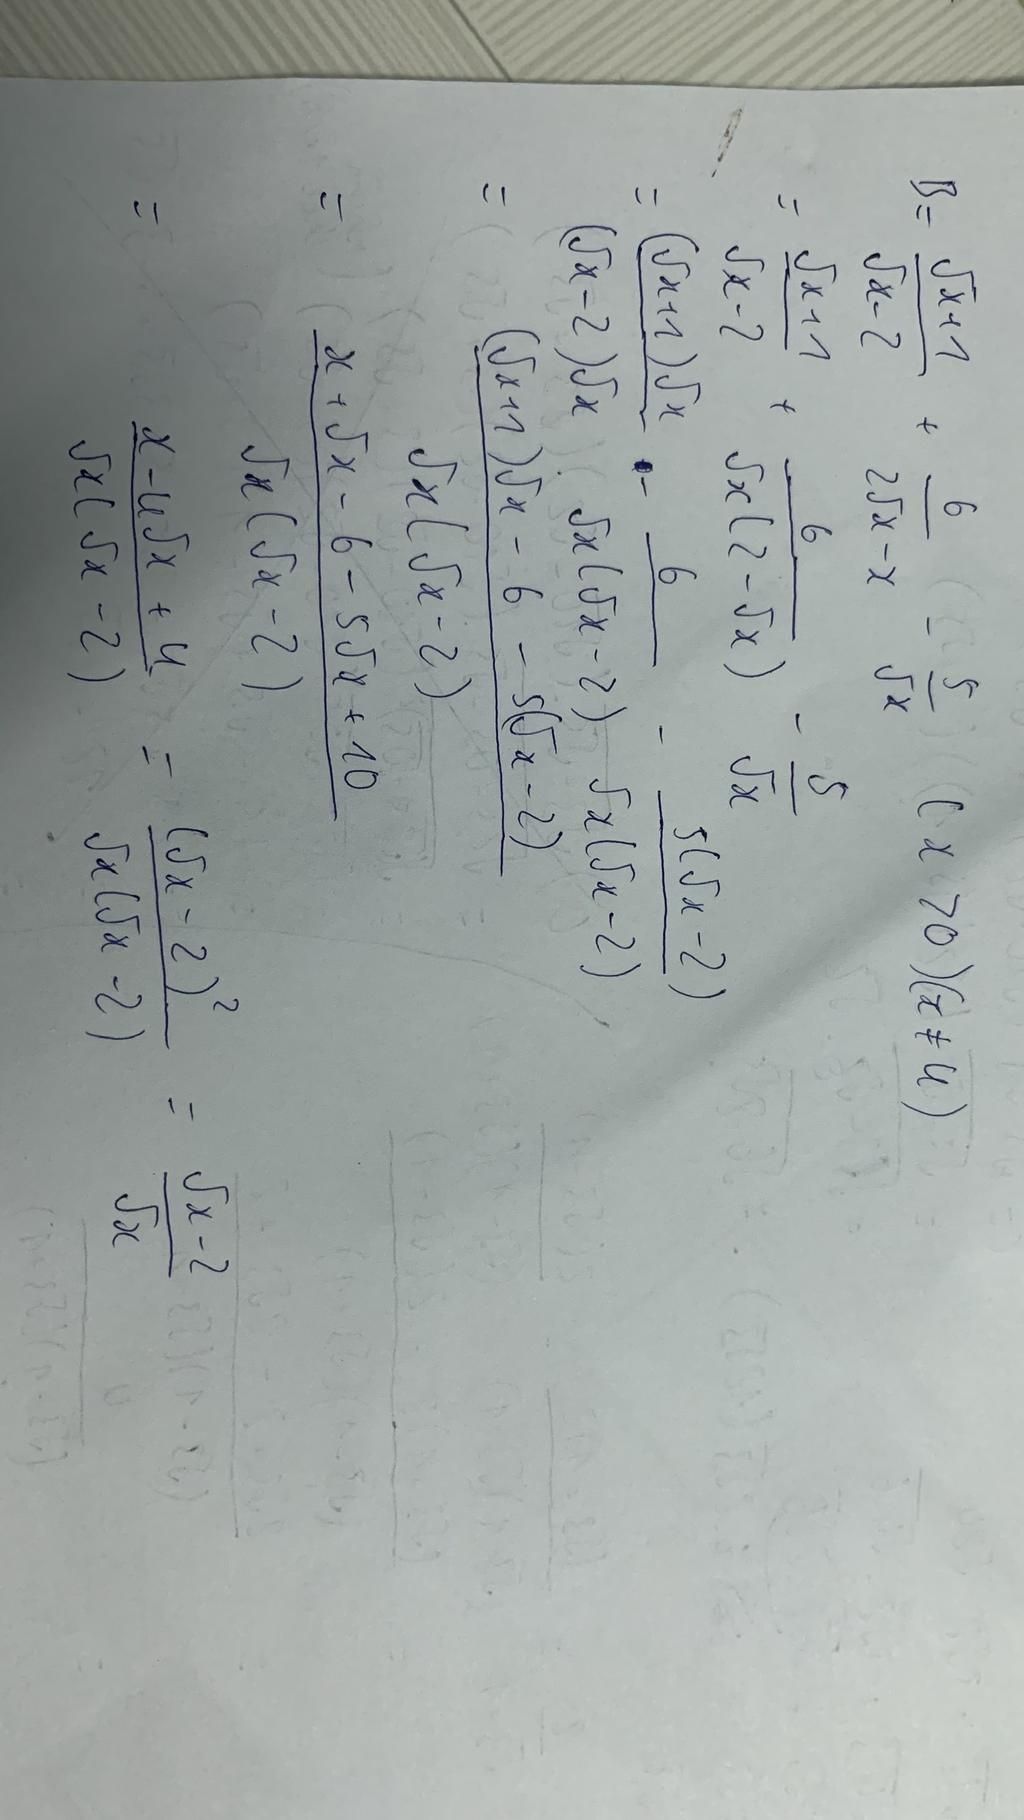 B = (√x+1)/(√x-2) + 6/(2√x-x) - 5/√x (x>0)(x≠4)
= (√x+1)/(√x-2) + 6/(√x(2-√x)) - 5/√x
= ((√x+1)√x)/((√x-2)√x) - 6/(√x(√x-2)) - 5(√x-2)/(√x(√x-2))
= ((√x+1)√x - 6 - 5(√x-2))/(√x(√x-2))
= (x+√x-6-5√x+10)/(√x(√x-2))
= (x-4√x+4)/(√x(√x-2)) = (√x-2)²/(√x(√x-2)) = (√x-2)/√x